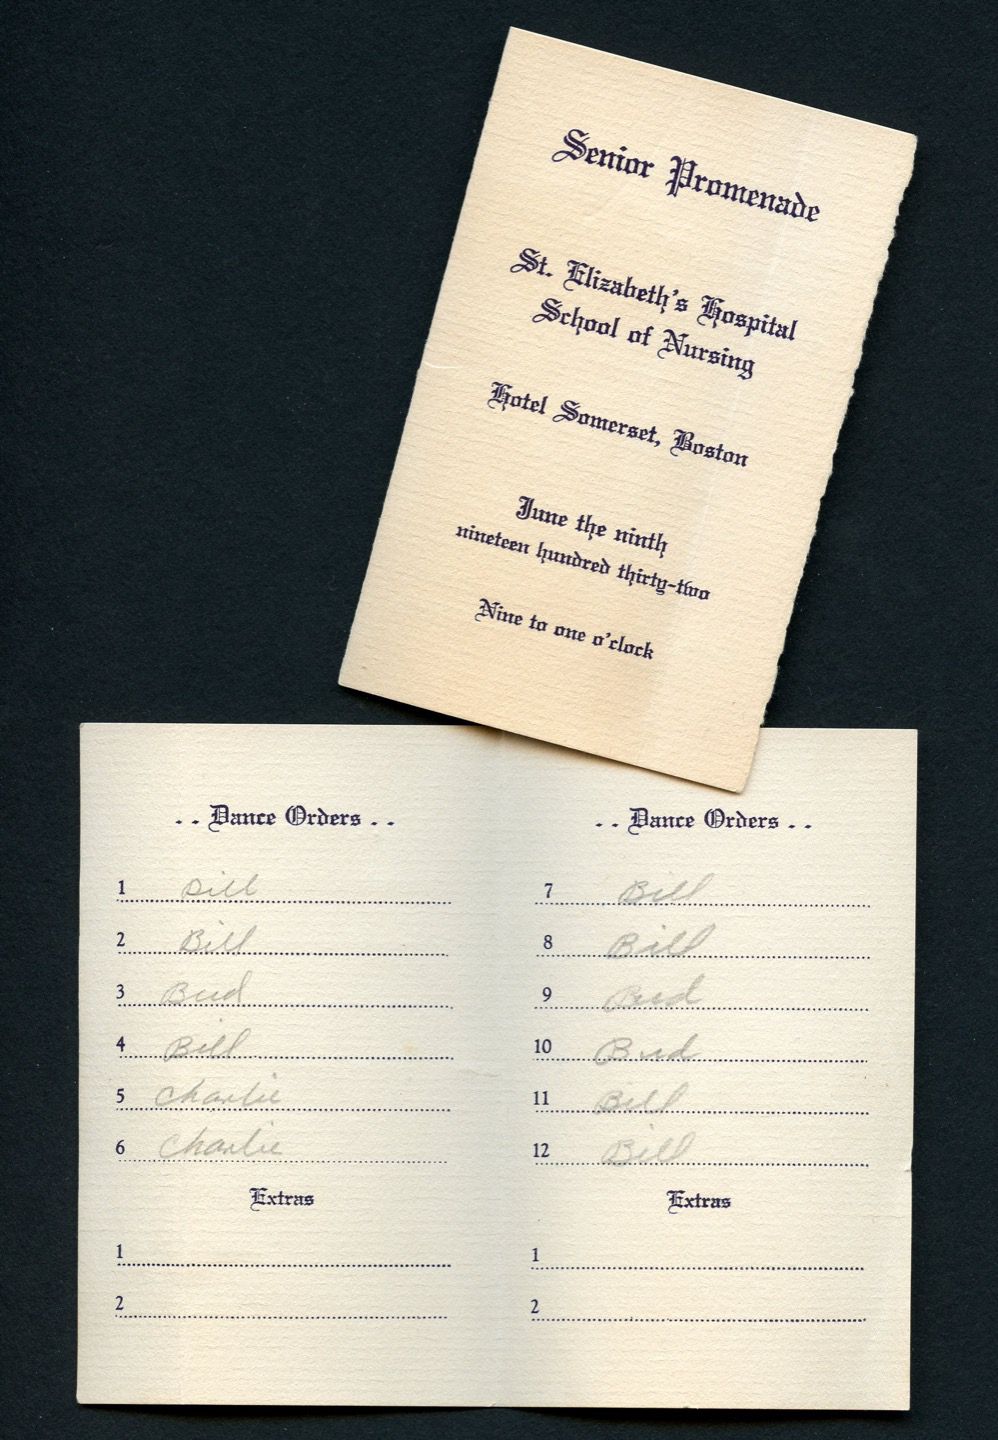 Senior Promenade
St. Elizabeth's Hospital
School of Nursing
Hotel Somerset, Boston
June the ninth
nineteen hundred thirty-two
Nine to one o'clock
. . Dance Orders . .
1 Bill
2 Bill
3 Bud
4 Bill
5 Charlie
6 Charlie
Extras
1
2
. . Dance Orders . .
7 Bill
8 Bill
9 Bud
10 Bud
11 Bill
12 Bill
Extras
1
2